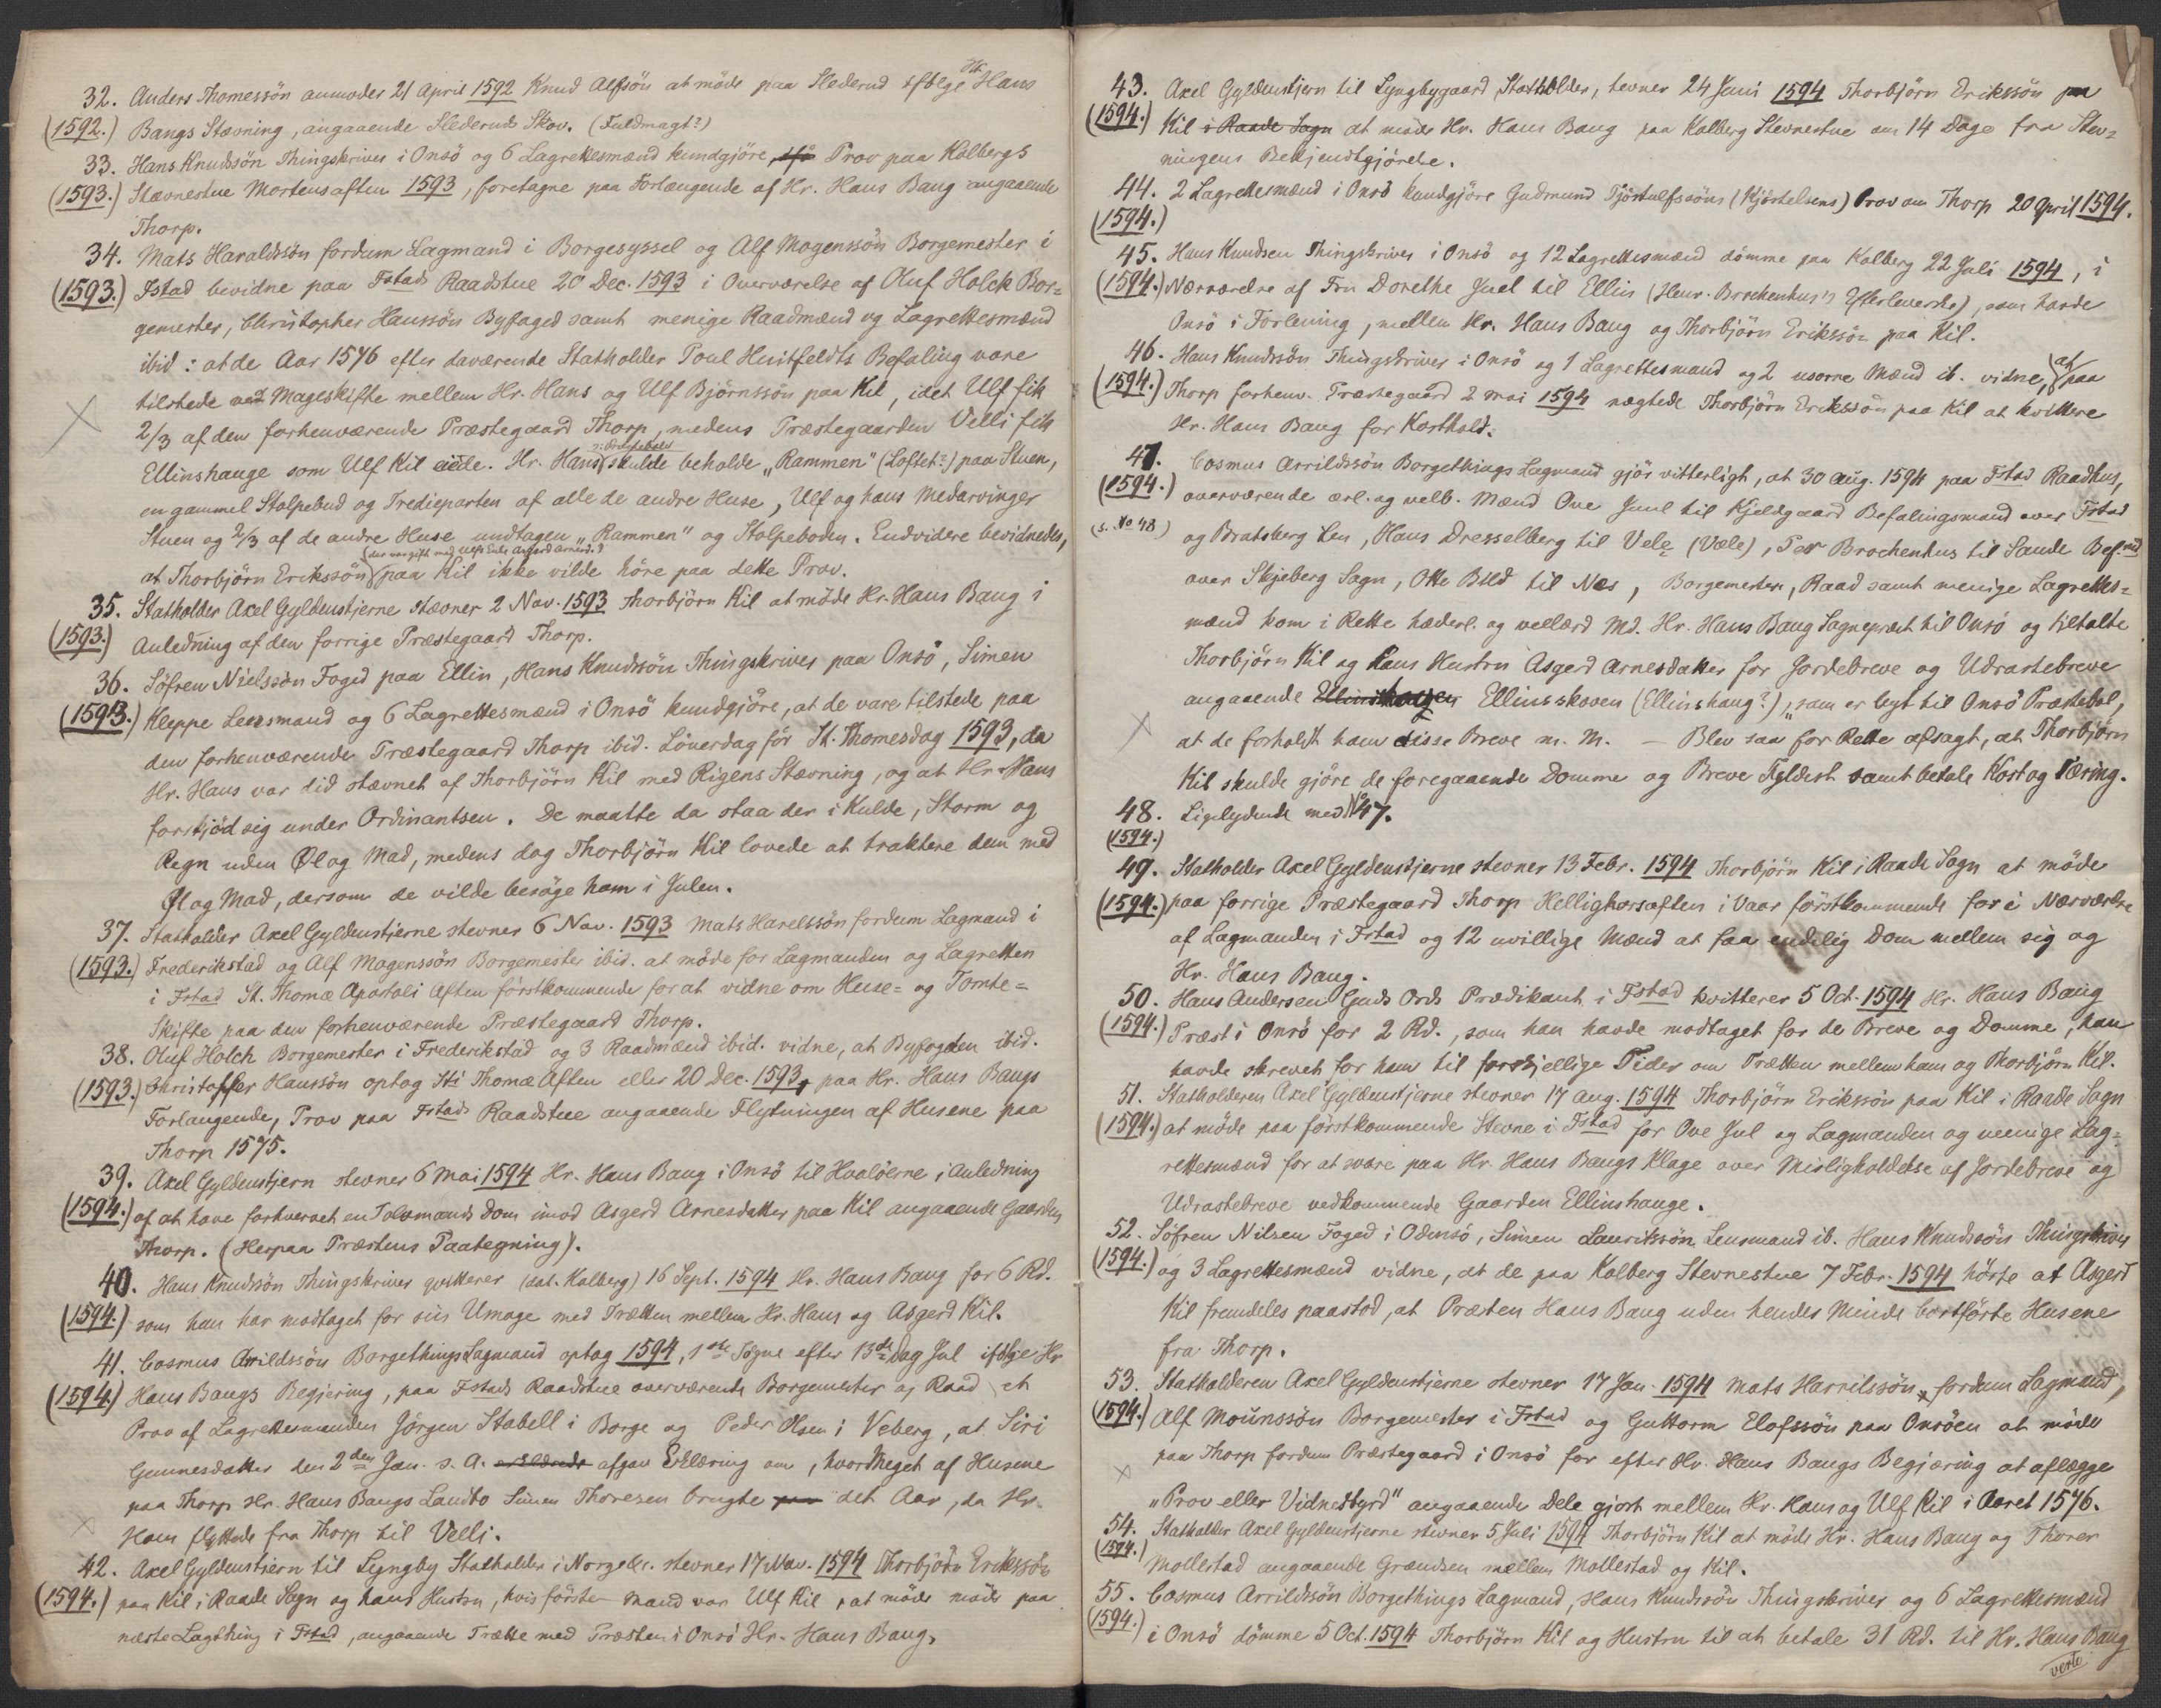 32. Anders Thomessön anmodes 21 April 1592 Knud Alfsön at möde paa Slederud ifölge Hr. Hans
(1592.) Bangs Stævning, angaaende Slederuds Skov. (Fuldmagt?)
33. Hans Knudssön Thingskriver i Onsö og 6 Lagrettesmænd kundgjöre, Prov paa Kolbergs
(1593.) Stævnestue Mortensaften 1593, foretagne paa Forlængende af Hr. Hans Bang angaaende
Thorp.
34. Mats Haraldssön fordum Lagmand i Borgesyssel og Alf Mogenssön Borgemester i
(1593.) Fstad bevidne paa Fstads Raadstue 20 Dec. 1593 i Overværelse af Oluf Holck Bor=
gemester, Christopher Hanssön Byfoged samt menige Raadmænd og Lagrettesmænd
ibid: at de Aar 1576 efter daværende Statholder Poul Huitfeldts Befaling vare
tilstede ved Mageskifte mellem Hr. Hans og Ulf Björnssön paa Kil, idet Ulf fik
2/3 af den forhenværende Præstegaard Thorp, medens Præstegaarden Velli fik
Ellinshauge som Ulf Kil eiede. Hr. Hans (ɔ: Præstebolet) skulde beholde „Rammen" (Loftet?) paa Stuen,
en gammel Stolpebud og Tredieparten af alle de andre Huse, Ulf og hans Medarvinger
Stuen og 2/3 af de andre Huse undtagen „Rammen" og Stolpeboden. Endvidere bevidnedes,
at Thorbjörn Erikssön (der var gift med Ulfs Enke Asgerd Arnesd.) paa Kil ikke vilde höre paa dette Prov.
35. Statholder Axel Gyldenstjerne stævner 2 Nov. 1593 Thorbjörn Kil at möde Hr. Hans Bang i
(1593.) Anledning af den forrige Præstegaard Thorp.
36. Söfren Nielssön Foged paa Ellin, Hans Knudssön Thingskriver paa Onsö, Simen
(1593.) Kleppe Lensmand og 6 Lagrettesmænd i Onsö kundgjöre, at de vare tilstede paa
den forhenværende Præstegaard Thorp ibid. Löverdag för St. Thomesdag 1593, da
Hr. Hans var did stævnet af Thorbjörn Kil med Rigens Stævning, og at Hr. Hans
forskjöd sig under Ordinantsen. De maatte da staa der i Kulde, Storm og
Regn uden Øl og Mad, medens dog Thorbjörn Kil lovede at traktere dem med
Øl og Mad, dersom de vilde besöge ham i Julen.
37. Statholder Axel Gyldenstjerne stevner 6 Nov. 1593 Mats Harelssön fordum Lagmand i
(1593.) Frederikstad og Alf Mogenssön Borgemester ibid. at möde for Lagmanden og Lagretten
i Fstad St. Thomæ Apostoli Aften förstkommende for at vidne om Huse= og Tomte=
Skifte paa den forhenværende Præstegaard Thorp.
38. Oluf Holck Borgemester i Frederikstad og 3 Raadmænd ibid. vidne, at Byfogden ibid.
(1593.) Christoffer Hanssön optog Sti Thomæ Aften eller 20 Dec. 1593, paa Hr. Hans Bangs
Forlangende, Prov paa Fstads Raadstue angaaende Flytningen af Husene paa
Thorp 1575.
39. Axel Gyldenstjern stevner 6 Mai 1594 Hr. Hans Bang i Onsö til Hvalöerne i Anledning
(1594.) af at have forhvervet en Tolvmands Dom imod Asgerd Arnesdatter paa Kil angaaende Gaarden
Thorp. (Herpaa Præstens Paategning).
40. Hans Knudssön Thingskriver qvitterer (dat. Kalberg) 16 Sept. 1594 Hr. Hans Bang for 6 Rd.
(1594.) som han har modtaget for sin Umage med Trætten mellem Hr. Hans og Asgerd Kil.
41. Cosmus Arildssön Borgethings Lagmand optog 1594, 1ste Sögne efter 13de Dag Jul ifölge Hr
(1594.) Hans Bangs Begjering, paa Fstads Raadstue overværende Borgemester og Raad et
Prov af Lagrettesmanden Jörgen Stabell i Borge og Peder Olsen i Veberg, at Siri
Gunnesdatter den 2den Jan. s. A. erklærede afgav Erklæring om, hvor Meget af Husene
paa Thorp Hr. Hans Bangs Landbo Simen Thoresen brugte paa det Aar, da Hr.
Hans flyttede fra Thorp til Velli.
42. Axel Gyldenstjern til Lyngby Statholder i Norge &c. stevner 17 Nov. 1594 Thorbjörn Erikssön
(1594.) paa Kil i Raade Sogn og hans Hustru, hvis förste Mand var Ulf Kil, at möde möde paa
næste Lagthing i Fstad, angaaende Trætte med Præsten i Onsö Hr. Hans Bang.
43. Axel Gyldenstjern til Lyngbygaard Statholder, stevner 24 Juni 1594 Thorbjörn Erikssön paa
(1594.) Kil i Raade Sogn at möde Hr. Hans Bang paa Kalberg Stevnestue om 14 Dage fra Stev=
ningens Bekjendtgjörelse.
44. 2 Lagrettesmænd i Onsö kundgjöre Gudmund Tjöstulfssöns (Kjöstelsens) Prov om Thorp 20 April 1594.
(1594.)
45. Hans Knudsen Thingskriver i Onsö og 12 Lagrettesmænd dömme paa Kalberg 22 Juli 1594, i
(1594.) Nærværelse af Fru Dorethe Juel til Ellin (Henr. Brochenhus's Efterleverske), som havde
Onsö i Forlening, mellem Hr. Hans Bang og Thorbjörn Erikssön paa Kil.
46. Hans Knudssön Thingskriver i Onsö og 1 Lagrettesmand og 2 usorne Mænd ib. vidne, at paa
(1594.) Thorp forhenv. Præstegaard 2 Mai 1594 nægtede Thorbjörn Erikssön paa Kil at kvittere
Hr. Hans Bang for Korthold.
47. Cosmus Arrildssön Borgethings Lagmand gjör vitterligt, at 30 Aug. 1594 paa Fstad Raadhus,
(1594.) overværende ærl. og velb. Mænd Ove Juul til Kjeldgaard Befalingsmand over Fstad
(s. No 48) og Bratsberg Len, Hans Dresselberg til Vele (Væle), Per Brochenhus til Sande Befmd
over Skjeberg Sogn, Otte Bild til Næs, Borgemester, Raad samt menige Lagrettes=
mænd kom i Rette hæderl. og vellærd Md. Hr. Hans Bang Sognepræst til Onsö og tiltalte
Thorbjörn Kil og Hans Hustru Asgerd Arnesdatter for Jordebreve og Udrastebreve
angaaende Ellinshaugen Ellinsskoven (Ellinshaug?), „som er lagt til Onsö Præstebol,
at de forholdt ham disse Breve m. M. — Blev saa for Rette afsagt, at Thorbjörn
Kil skulde gjöre de foregaaende Domme og Breve Fyldest samt betale Kost og Tæring.
48. Ligelydende med No 47.
(1594.)
49. Statholder Axel Gyldenstjerne stevner 13 Febr. 1594 Thorbjörn Kil i Raade Sogn at möde
(1594.) paa forrige Præstegaard Thorp Hellighorsaften i Vaar förstkommende for i Nærværelse
af Lagmanden i Fstad og 12 uvillige Mænd at faa endelig Dom mellem sig og
Hr. Hans Bang.
50. Hans Andersen Guds Ords Prædikant i Fstad kvitterer 5 Oct. 1594 Hr. Hans Bang
(1594.) Præst i Onsö for 2 Rd., som han havde modtaget for de Breve og Domme, han
havde skrevet for ham til forskjellige Tider om Trætten mellem ham og Thorbjörn Kil.
51. Statholderen Axel Gyldenstjerne stevner 17 Aug. 1594 Thorbjörn Erikssön paa Kil i Raade Sogn
(1594.) at möde paa förstkommende Stevne i Fstad for Ove Jul og Lagmanden og menige Lag=
rettesmænd for at svare paa Hr. Hans Bangs Klage over Misligholdelse af Jordebreve og
Udrastebreve vedkommende Gaarden Ellinshauge.
52. Söfren Nilsen Foged i Odensö, Simen Lauritssön Lensmand ib. Hans Knudssön Thingskriver
(1594.) og 3 Lagrettesmænd vidne, at de paa Kolberg Stevnestue 7 Febr. 1594 hörte at Asgerd
Kil fremdeles paastod, at Præsten Hans Bang uden hendes Minde bortförte Husene
fra Thorp.
53. Statholderen Axel Gyldenstjerne stevner 17 Jan. 1594 Mats Harrilssön, fordum Lagmand,
(1594.) Alf Mounssön Borgemester i Fstad og Guttorm Elofssön paa Onsöen at möde
paa Thorp fordum Præstegaard i Onsö for efter Hr. Hans Bangs Begjæring at aflægge
„Prov eller Vidnesbyrd" angaaende Dele gjort mellem Hr. Hans og Ulf Kil i Aaret 1576.
54. Statholder Axel Gyldenstjerne stevner 5 Juli 1594 Thorbjörn Kil at möde Hr. Hans Bang og Thorer
(1594.) Mollestad angaaende Grændsen mellem Mollestad og Kil.
55. Cosmus Arrildssön Borgethings Lagmand, Hans Knudssön Thingskriver og 6 Lagrettesmænd
(1594.) i Onsö dömme 5 Oct. 1594 Thorbjörn Kil og Hustru til at betale 31 Rd. til Hr. Hans Bang
verte